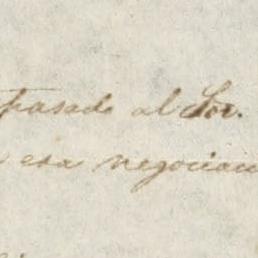 trasado al Sor.
esa negociaci